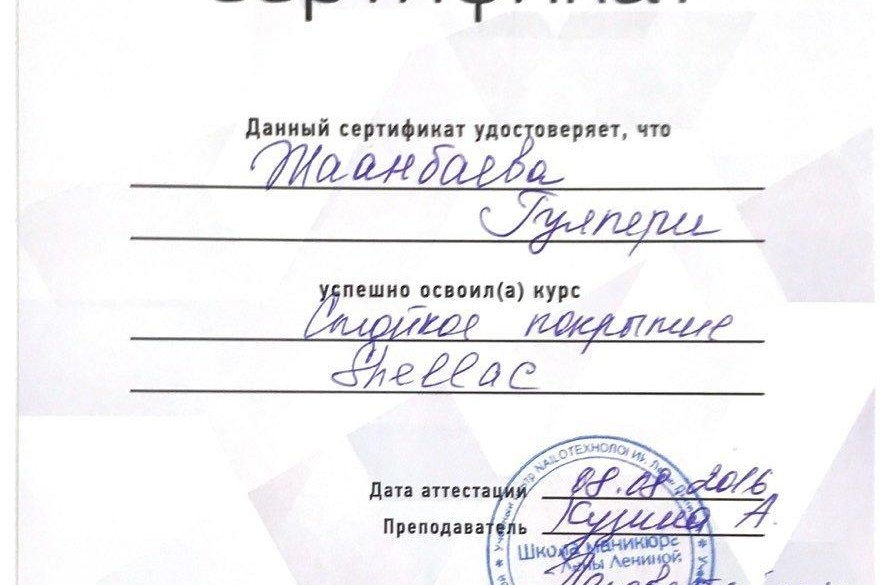 Сертификат
Данный сертификат удостоверяет, что
Жаанбаева
Гулпери
успешно освоил(а) курс
Стойкое покрытие
Shellac
Дата аттестации 08.08.2016
Преподаватель Кузина А.
Учебный центр NAILОТЕХНОЛОГИИ
Школа маникюра
Лены Лениной